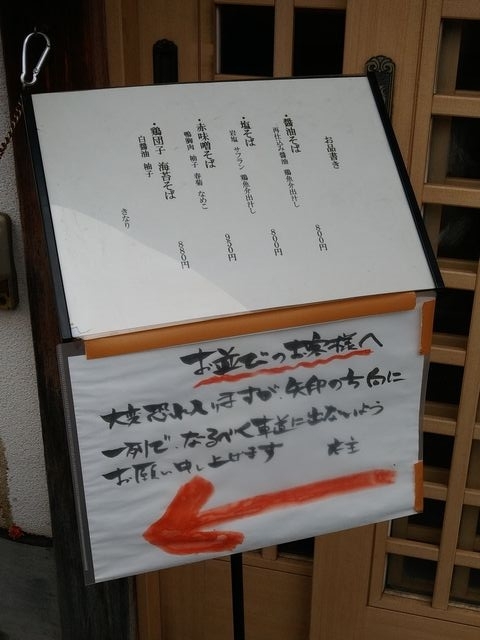 お品書き
・醤油そば
再仕込み醤油 鶏魚介出汁し
800円
・塩そば
岩塩 サフラン 鶏魚介出汁し
800円
・赤味噌そば
鴨胸肉 柚子 春菊 なめこ
950円
・鶏団子 海苔そば
白醤油 柚子
880円
きなり
お並びのお客様へ
大変恐れ入りますが、矢印の方向に
一列で、なるべく車道に出ないよう
お願い申し上げます 店主